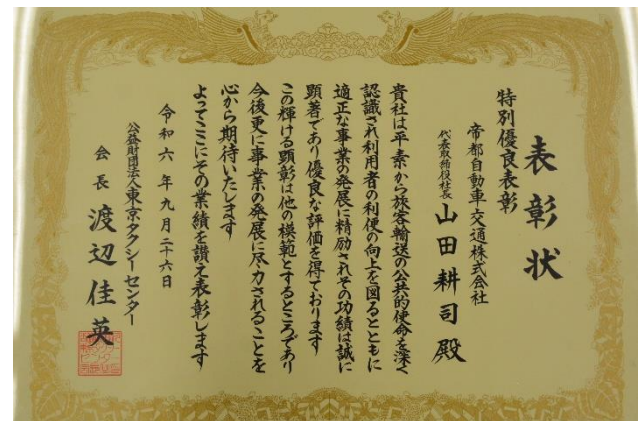 表彰状
特別優良表彰
帝都自動車交通株式会社
代表取締役社長 山田耕司殿
貴社は平素から旅客輸送の公共的使命を深く
認識され利用者の利便の向上を図るとともに
適正な事業の発展に精励されその功績は誠に
顕著であり優良な評価を得ております
この輝ける顕彰は他の模範とするところであり
今後更に事業の発展に尽力されることを
心から期待いたします
よってここにその業績を讃え表彰します
令和六年九月二十六日
公益財団法人東京タクシーセンター
会長 渡辺佳英